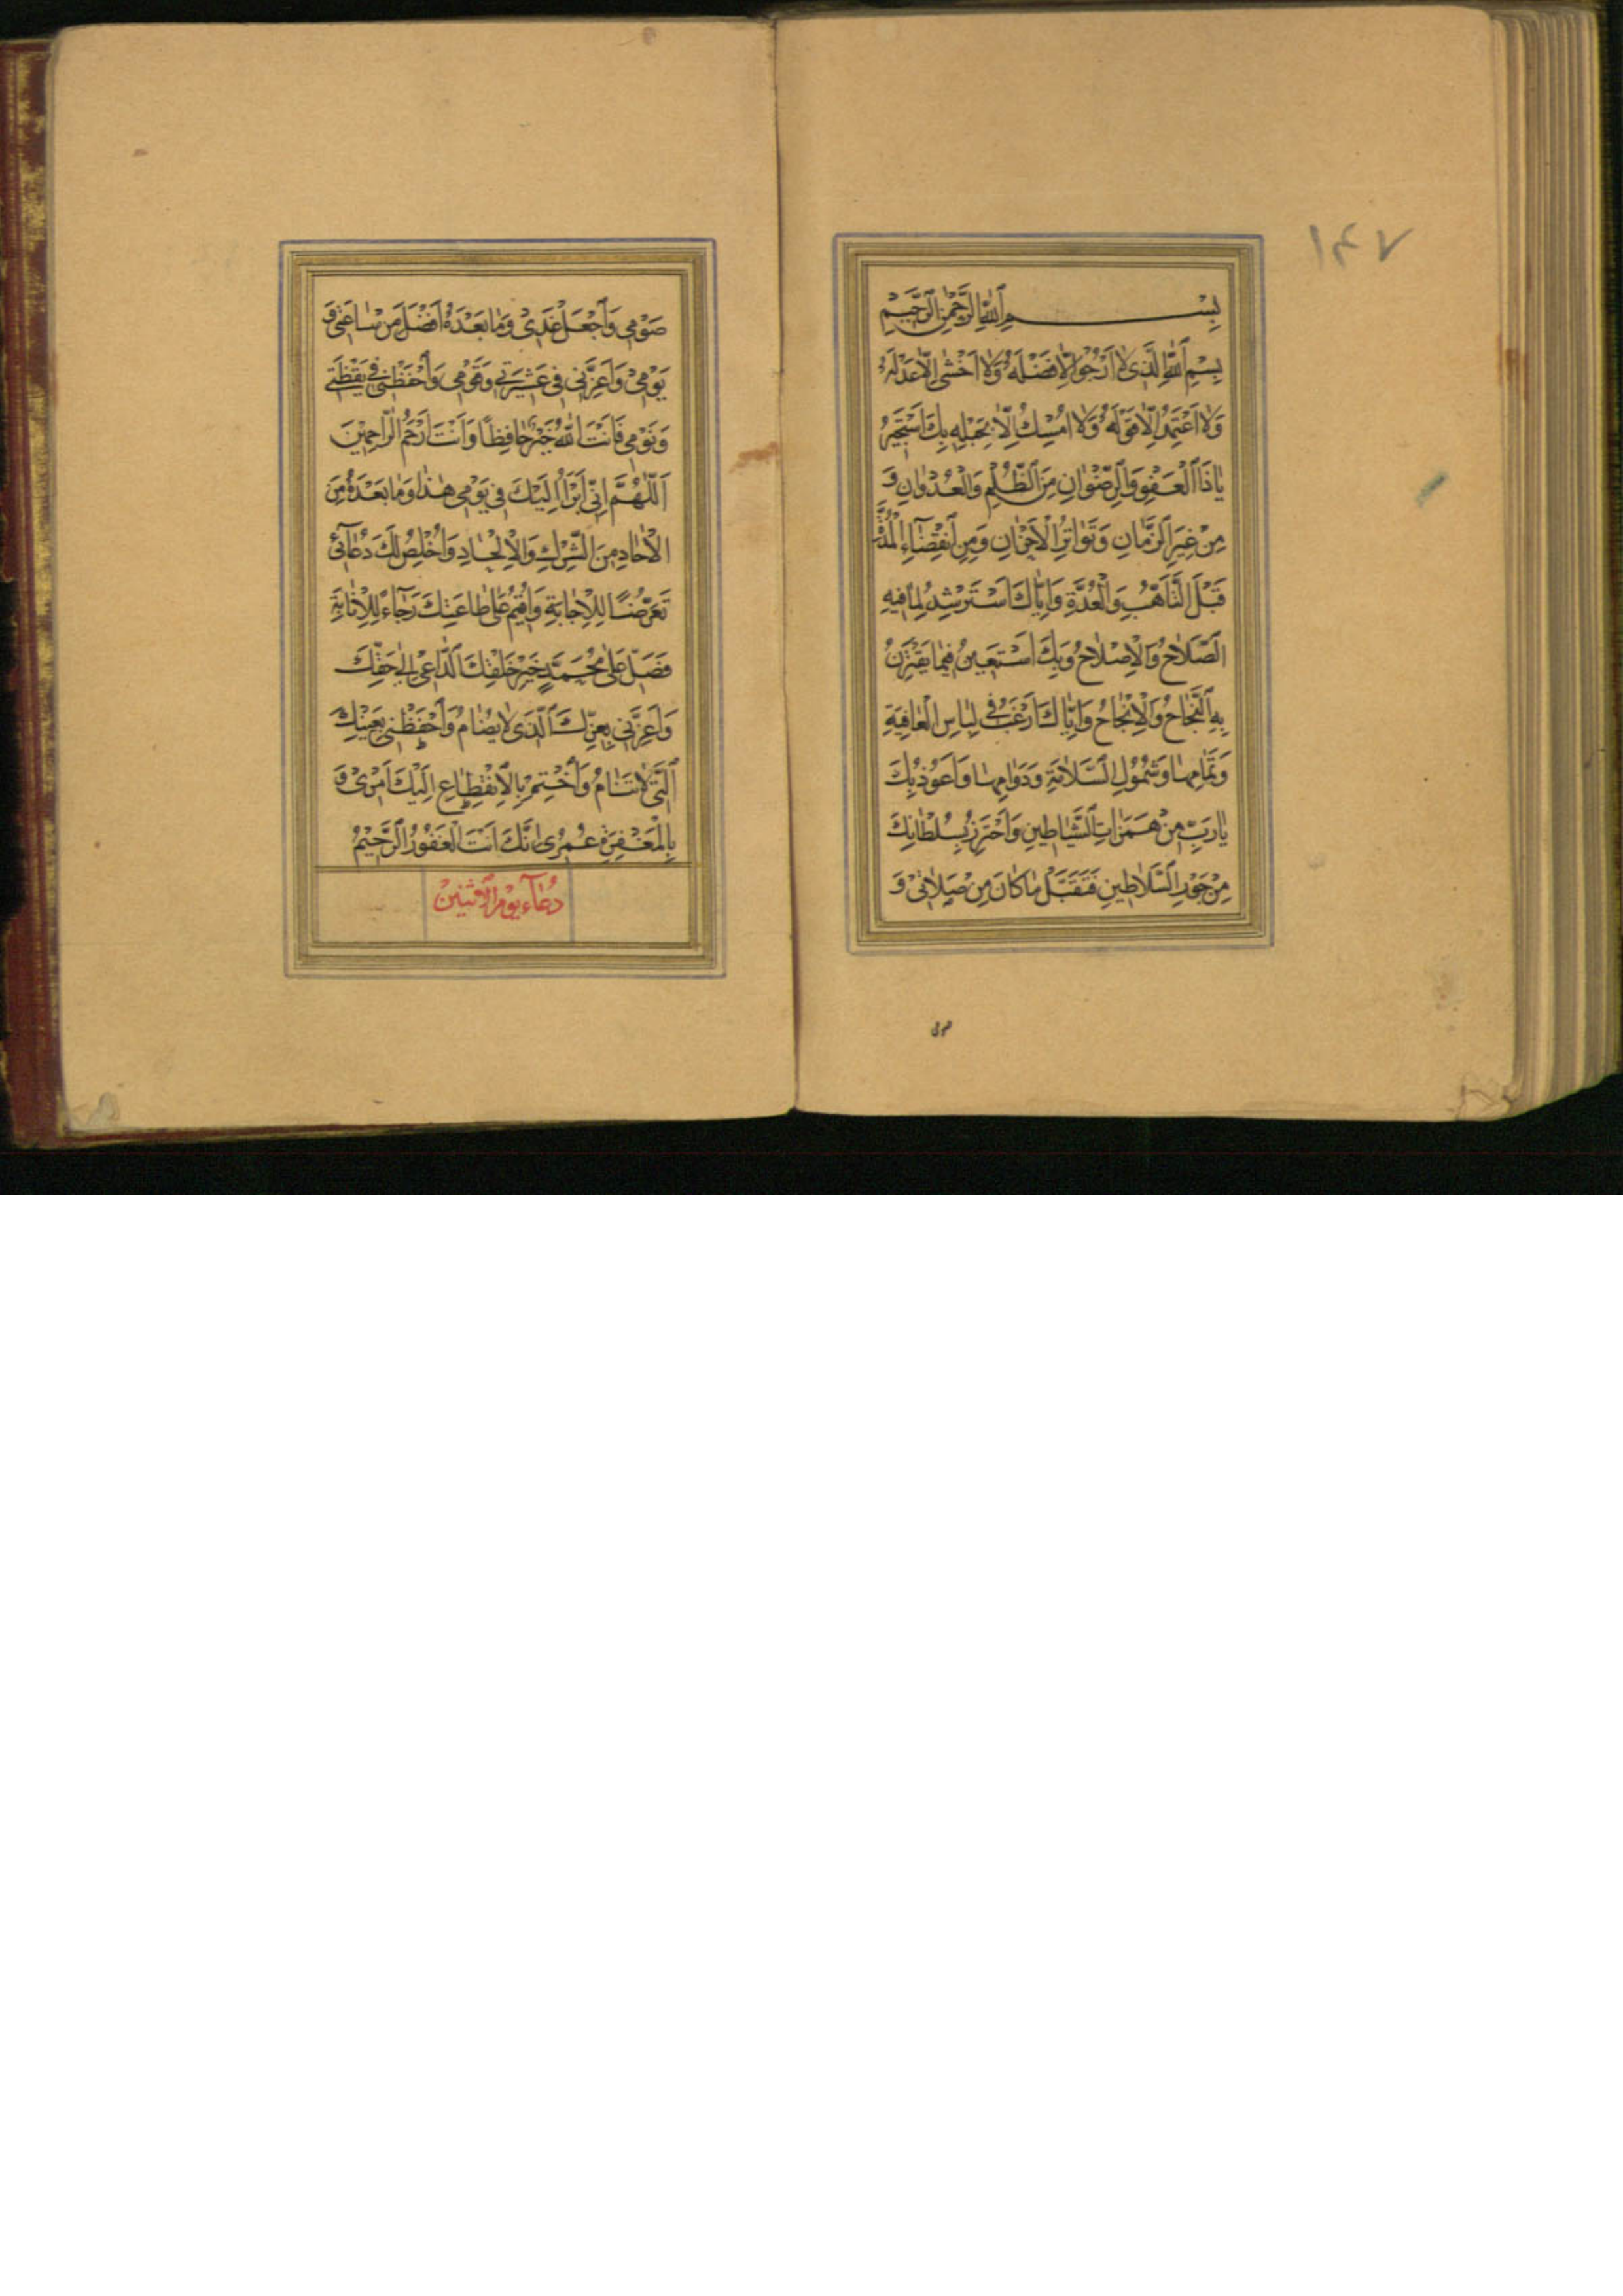 ١٤٧
بِسْمِ اللهِ الرَّحْمٰنِ الرَّحِيْمِ
بِسْمِ اللهِ الَّذِی لٰا اَرْجُو اِلّٰا فَضْلَهُ وَلٰا اَخْشٰی اِلّٰا عَدْلَهُ
وَلٰا اَعْتَمِدُ اِلّٰا قَوْلَهُ وَلٰا اُمْسِكُ اِلّٰا بِحَبْلِهِ بِكَ اَسْتَجِيْرُ
يٰا ذَا الْعَفْوِ وَالرِّضْوٰانِ مِنَ الظُّلْمِ وَالْعُدْوٰانِ وَ
مِنْ غِيَرِ الزَّمٰانِ وَتَوٰاتُرِ الْاَحْزٰانِ وَمِنِ انْقِضٰٓاءِ الْمُدَّةِ
قَبْلَ التَّاَهُّبِ وَالْعُدَّةِ وَاِيّٰاكَ اَسْتَرْشِدُ لِمٰا فِيهِ
الصَّلٰاحُ وَالْاِصْلٰاحُ وَبِكَ اَسْتَعِينُ فِيمٰا يَقْتَرِنُ
بِهِ النَّجٰاحُ وَالْاِنْجٰاحُ وَاِيّٰاكَ اَرْغَبُ فِی لِبٰاسِ الْعٰافِيَةِ
وَتَمٰامِهٰا وَشُمُوْلِ السَّلٰامَةِ وَدَوٰامِهٰا وَاَعُوْذُ بِكَ
يٰا رَبِّ مِنْ هَمَزٰاتِ الشَّيٰاطِينِ وَاَحْتَرِزُ بِسُلْطٰانِكَ
مِنْ جَوْرِ السَّلٰاطِينِ فَتَقَبَّلْ مٰا كٰانَ مِنْ صَلٰاتِیْ وَ
صومی
صَوْمِی وَاجْعَلْ غَدِیْ وَمٰا بَعْدَهُ اَفْضَلَ مِنْ سٰاعَتِی وَ
يَوْمِیْ وَاَعِزَّنِی فِی عَشِيْرَتِی وَقَوْمِی وَاحْفَظْنِی فِی يَقْظَتِی
وَنَوْمِی فَاَنْتَ اللهُ خَيْرٌ حٰافِظًا وَاَنْتَ اَرْحَمُ الرّٰاحِمِيْنَ
اَللّٰهُمَّ اِنِّی اَبْرَاُ اِلَيْكَ فِی يَوْمِی هٰذٰا وَمٰا بَعْدَهُ مِنَ
الْاٰحٰادِ مِنَ الشِّرْكِ وَالْاِلْحٰادِ وَاُخْلِصُ لَكَ دُعٰٓائِی
تَعَرُّضًا لِلْاِجٰابَةِ وَاُقِيْمُ عَلٰی طٰاعَتِكَ رَجٰٓاءً لِلْاِثٰابَةِ
فَصَلِّ عَلٰی مُحَمَّدٍ خَيْرِ خَلْقِكَ الدّٰاعِیْ اِلٰی حَقِّكَ
وَاَعِزَّنِی بِعِزِّكَ الَّذِی لٰا يُضٰامُ وَاحْفَظْنِی بِعَيْنِكَ
الَّتِی لٰا تَنٰامُ وَاخْتِمْ بِالْاِنْقِطٰاعِ اِلَيْكَ اَمْرِیْ وَ
بِالْمَغْفِرَةِ عُمْرِی اِنَّكَ اَنْتَ الْغَفُوْرُ الرَّحِيْمُ
دُعٰٓاء يوْم الاثنين